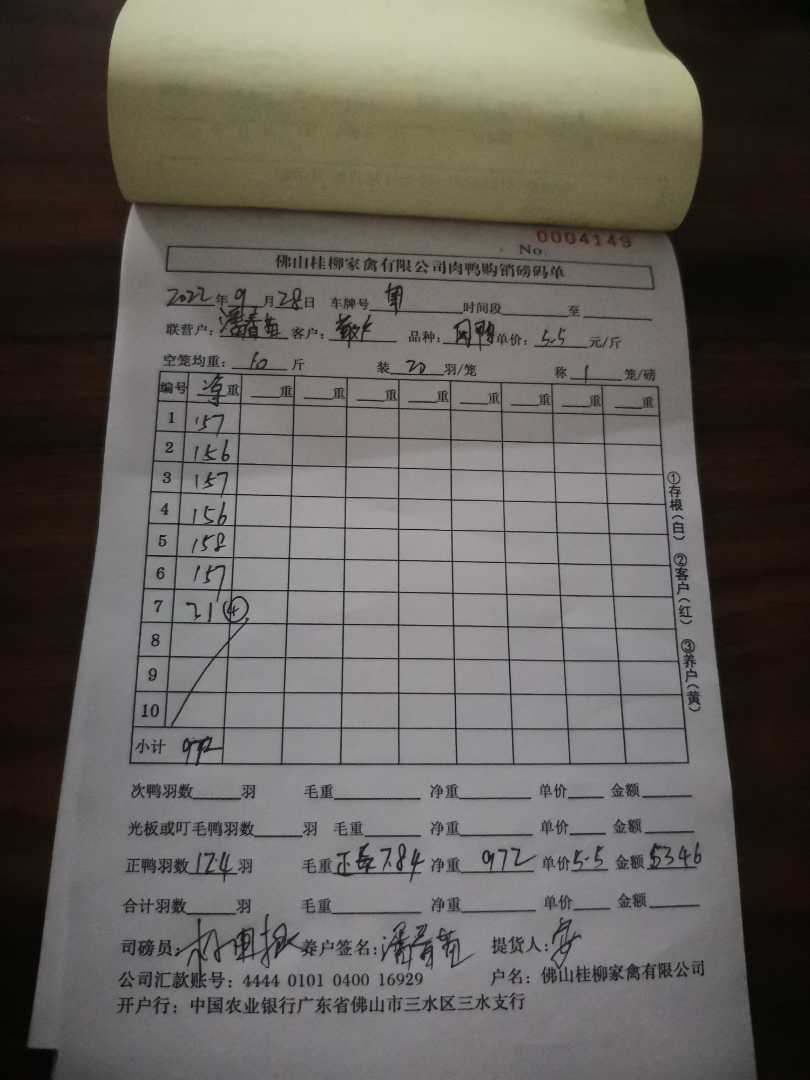 No. 0004149
佛山桂柳家禽有限公司肉鸭购销磅码单
2022年9月28日 车牌号 时间段 至
联营户: 客户: 品种: 单价: 5.5 元/斤
空笼均重: 10 斤 装 20 羽/笼 称 1 笼/磅
编号 净重 重 重 重 重 重 重 重 重
1 157
2 156
3 157
4 156
5 158
6 157
7 21 ④
8
9
10
小计 972
①存根(白) ②客户(红) ③养户(黄)
次鸭羽数 羽 毛重 净重 单价 金额
光板或叮毛鸭羽数 羽 毛重 净重 单价 金额
正鸭羽数 124 羽 毛重 正长7.84 净重 972 单价 5.5 金额 5346
合计羽数 羽 毛重 净重 单价 金额
司磅员: 养户签名: 提货人:
公司汇款账号: 4444 0101 0400 16929 户名: 佛山桂柳家禽有限公司
开户行: 中国农业银行广东省佛山市三水区三水支行